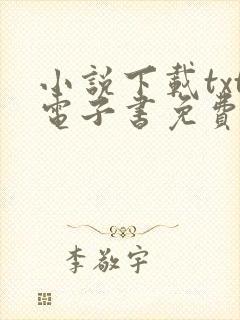 小說下載txt
電子書免費
李敬宇